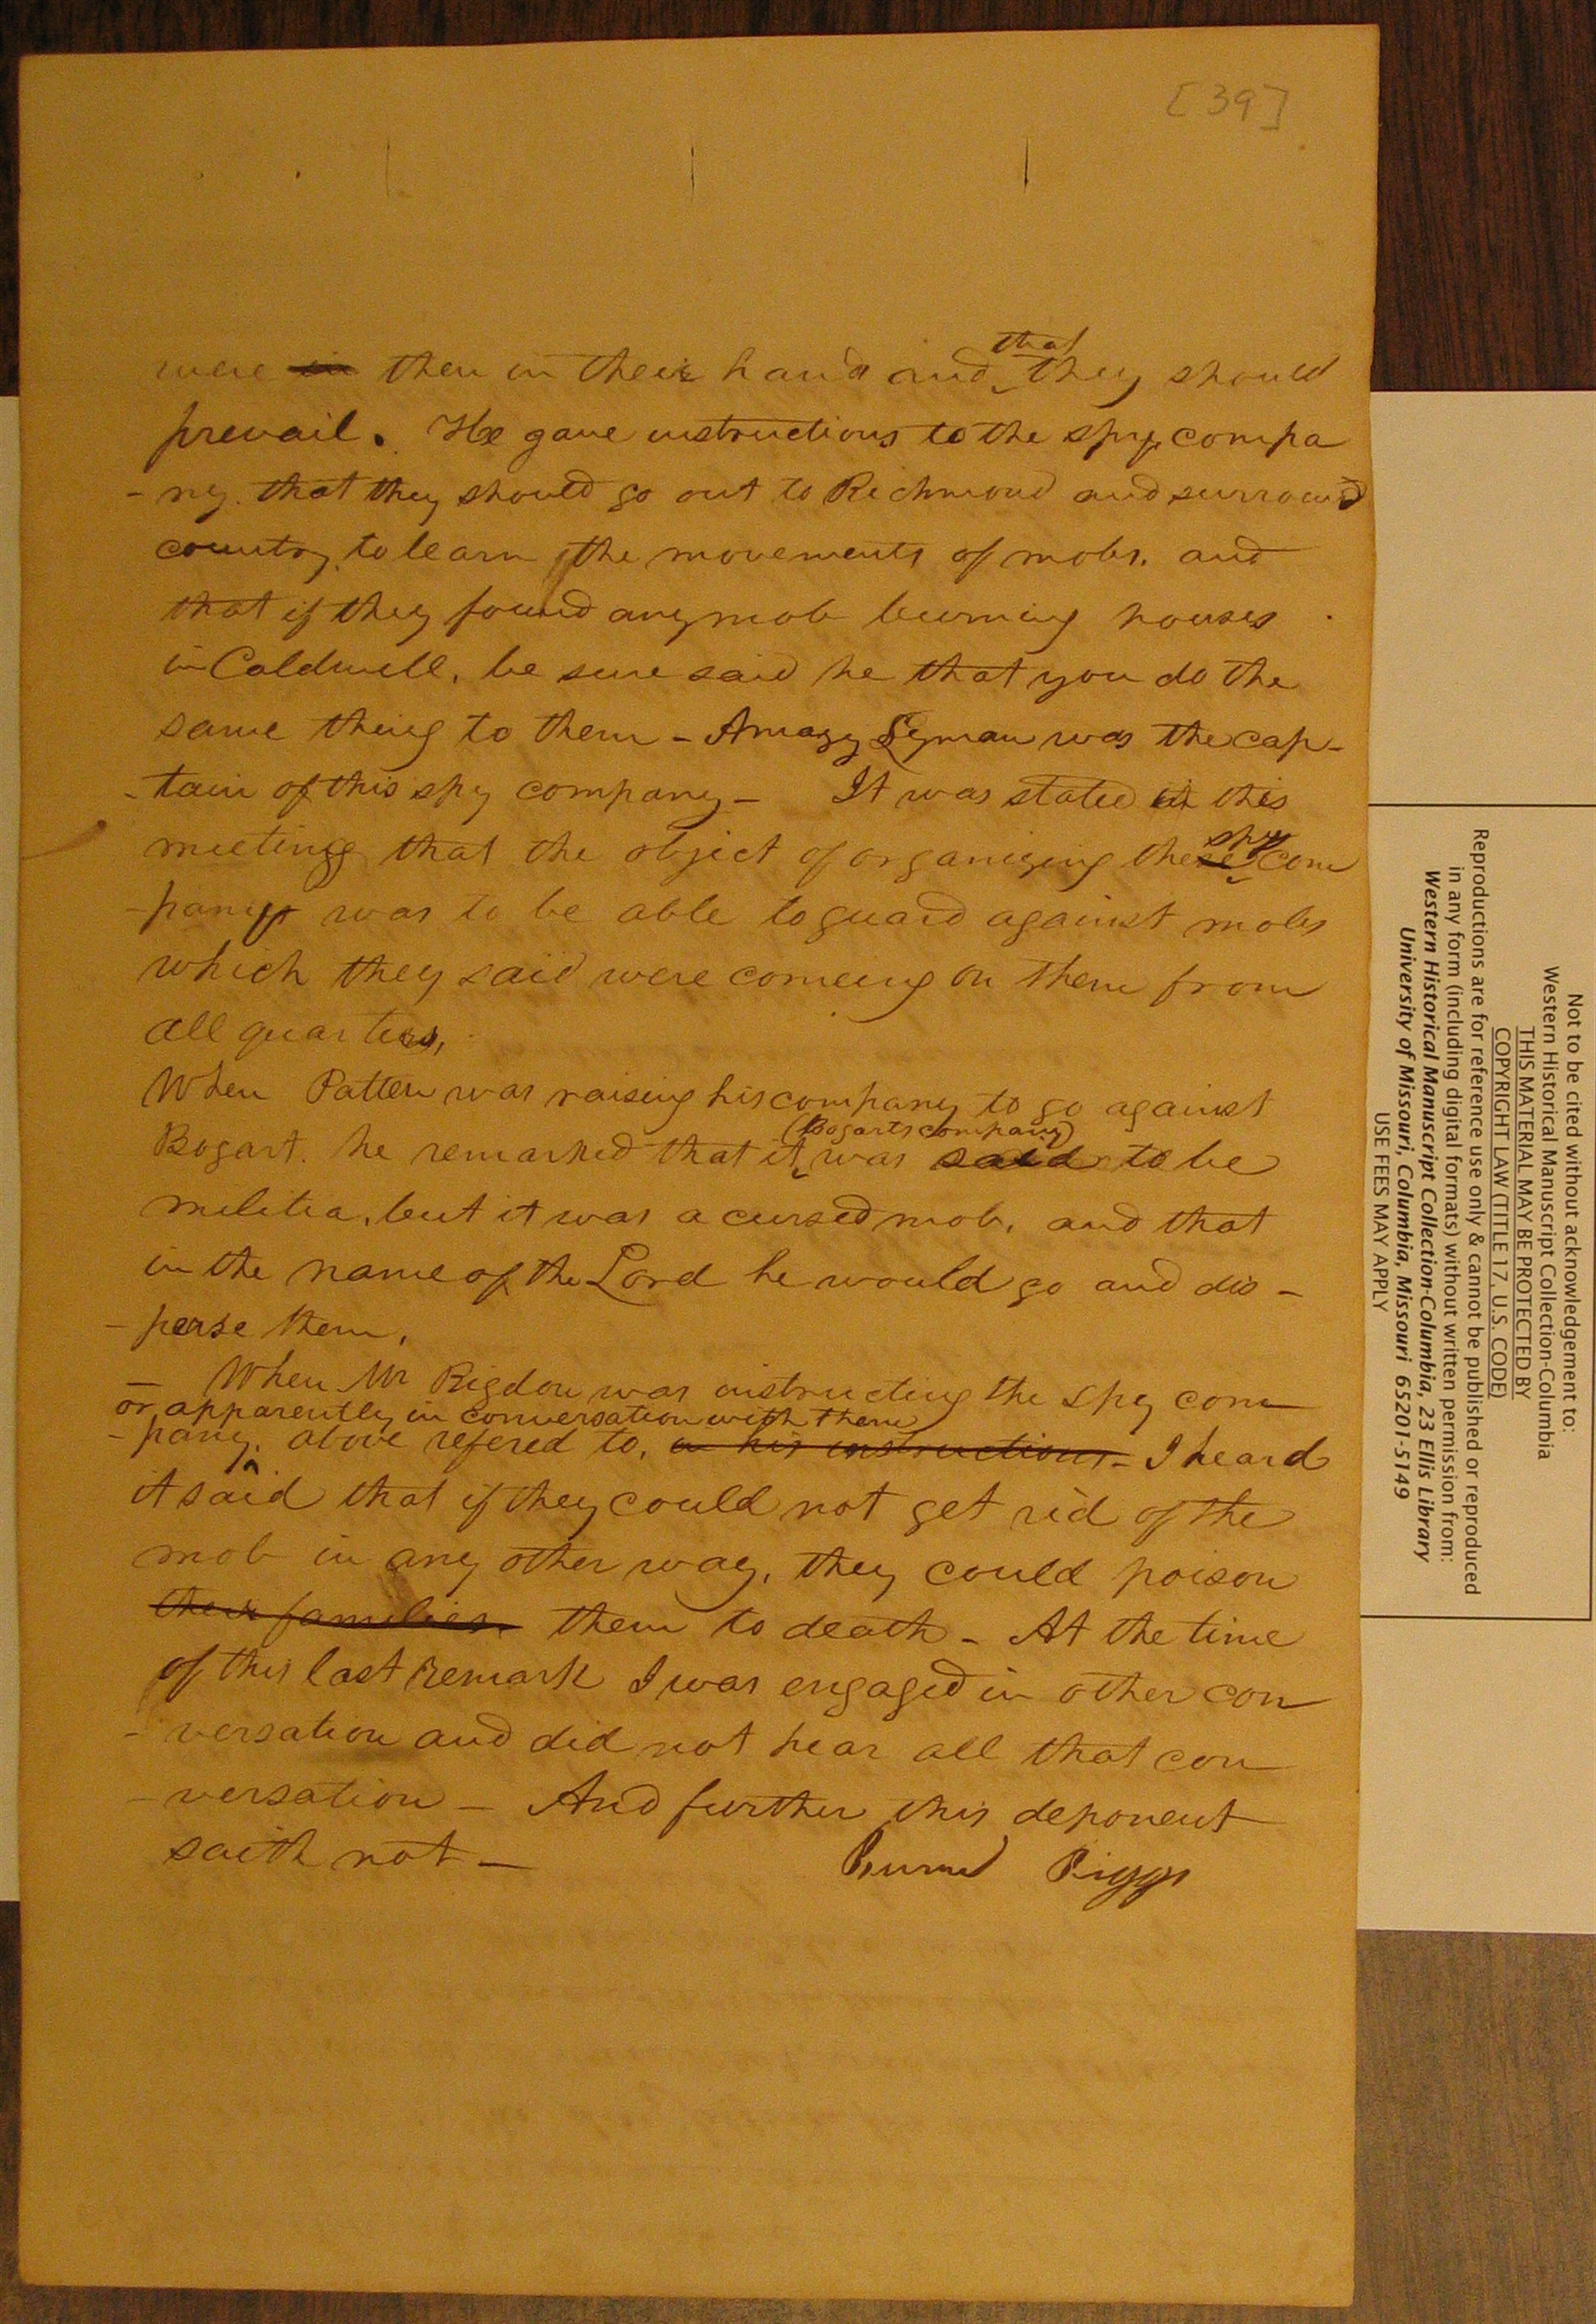 [39]
that
were in then in their hand and they should
prevail. He gave instructions to the spy compa
- ny. that they should go out to Richmond and surround
country. to learn the movements of mobs. and
that if they found any mob burning houses
in Caldwell, be sure said he that you do the
same thing to them - Amasy Lyman was the cap-
- tain of this spy company - It was stated in this
spy
meeting that the object of organizing these com
- pany was to be able to guard against mobs
which they said were comeing on them from
all quarters,
When Patten was raising his company to go against
(Bogarts company)
Bogart. he remarked that it was said to be
militia, but it was a cursed mob, and that
in the name of the Lord he would go and dis -
- perse them,
- When Mr Rigdon was instructing the spy com
or apparently in conversation with them
- pany. above refered to, in his instructions - I heard
it said that if they could not get rid of the
mob in any other way, they could poison
their families. them to death - At the time
of this last remark I was engaged in other con
- versation and did not hear all that con
- versation - And further this deponent
saith not -
Burrel Riggs
Not to be cited without acknowledgement to:
Western Historical Manuscript Collection-Columbia
THIS MATERIAL MAY BE PROTECTED BY
COPYRIGHT LAW (TITLE 17, U.S. CODE)
Reproductions are for reference use only & cannot be published or reproduced
in any form (including digital formats) without written permission from:
Western Historical Manuscript Collection-Columbia, 23 Ellis Library
University of Missouri, Columbia, Missouri 65201-5149
USE FEES MAY APPLY